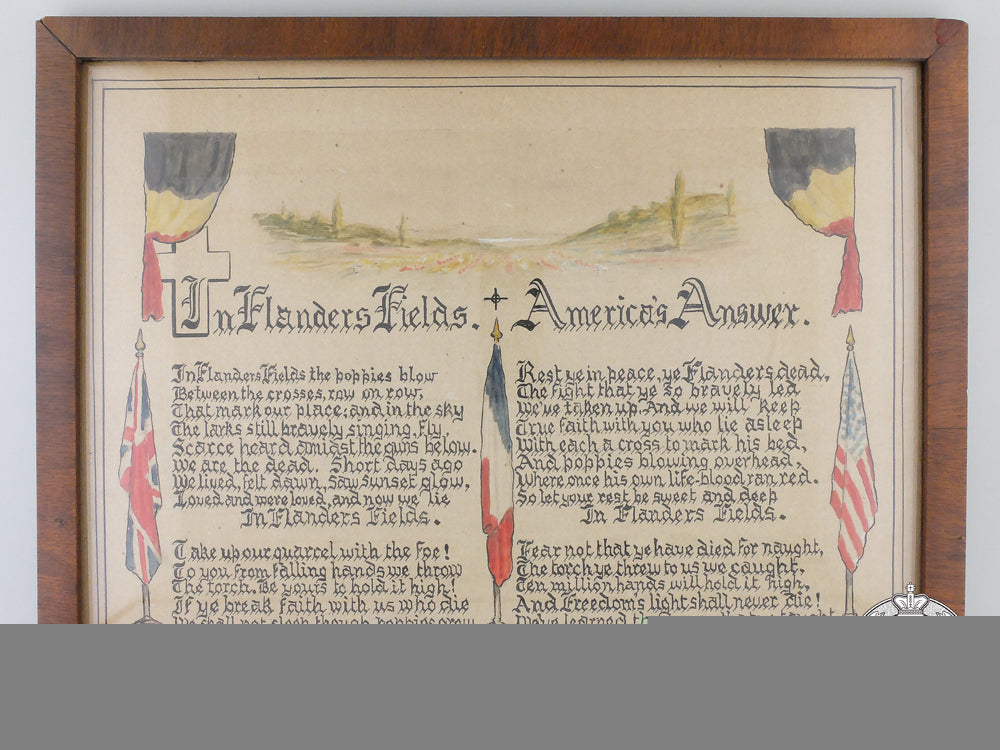 In Flanders Fields.
America's Answer.
In Flanders Fields the poppies blow
Between the crosses, row on row,
That mark our place; and in the sky
The larks still bravely singing, fly,
Scarce heard amidst the guns below.
We are the dead. Short days ago
We lived, felt dawn, saw sunset glow,
Loved and were loved, and now we lie
In Flanders Fields.
Take up our quarrel with the foe!
To you from falling hands we throw
The torch. Be yours to hold it high!
If ye break faith with us who die
We shall not sleep though poppies grow
Rest ye in peace, ye Flanders dead,
The fight that ye so bravely led
We've taken up. And we will keep
True faith with you who lie asleep
With each a cross to mark his bed,
And poppies blowing overhead,
Where once his own life-blood ran red.
So let your rest be sweet and deep
In Flanders Fields.
Fear not that ye have died for naught,
The torch ye threw to us we caught,
Ten million hands will hold it high,
And Freedom's light shall never die!
We've learned